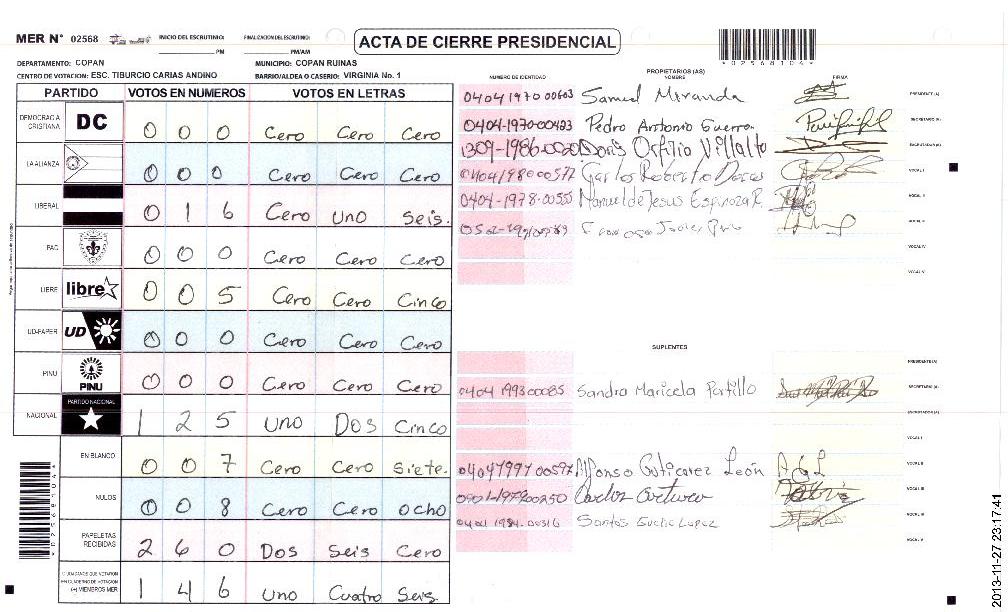 MER N° 02568
INICIO DEL ESCRUTINIO: PM
FINALIZACION DEL ESCRUTINIO: PM/AM
ACTA DE CIERRE PRESIDENCIAL
*02568104*
DEPARTAMENTO: COPAN
MUNICIPIO: COPAN RUINAS
CENTRO DE VOTACION: ESC. TIBURCIO CARIAS ANDINO
BARRIO/ALDEA O CASERIO: VIRGINIA No. 1
PARTIDO VOTOS EN NUMEROS VOTOS EN LETRAS
DEMOCRACIA CRISTIANA DC 0 0 0 Cero Cero Cero
LA ALIANZA 0 0 0 Cero Cero Cero
LIBERAL 0 1 6 Cero Uno Seis.
PAC 0 0 0 Cero Cero Cero
LIBRE libre 0 0 5 Cero Cero Cinco
UD-FAPER UD 0 0 0 Cero Cero Cero
PINU PINU 0 0 0 Cero Cero Cero
NACIONAL PARTIDO NACIONAL 1 2 5 Uno Dos Cinco
EN BLANCO 0 0 7 Cero Cero Siete.
NULOS 0 0 8 Cero Cero Ocho
PAPELETAS RECIBIDAS 2 6 0 Dos Seis Cero
CIUDADANOS QUE VOTARON EN CUADERNO DE VOTACION (+) MIEMBROS MER 1 4 6 Uno Cuatro Seis.
*02568104*
PROPIETARIOS (AS)
NUMERO DE IDENTIDAD NOMBRE FIRMA
0404 1970 00603 Samuel Miranda PRESIDENTE (A)
0404-1970-00423 Pedro Antonio Guerra SECRETARIO (A)
1309-1986-00 Doris Orfilio Villalto ESCRUTADOR (A)
0404198000577 Carlos Roberto VOCAL I
0404-1978-00555 Manuel de Jesus Espinoza R. VOCAL II
Javier VOCAL III
VOCAL IV
VOCAL V
SUPLENTES
PRESIDENTE (A)
0404 1993 00085 Sandra Maricela Portillo SECRETARIO (A)
ESCRUTADOR (A)
VOCAL I
Alfonso Gutierrez León A G L VOCAL II
0901-1979 00250 Carlos Arturo VOCAL III
0404 1984-00316 Santos Lopez VOCAL IV
VOCAL V
2013-11-27 23:17:41